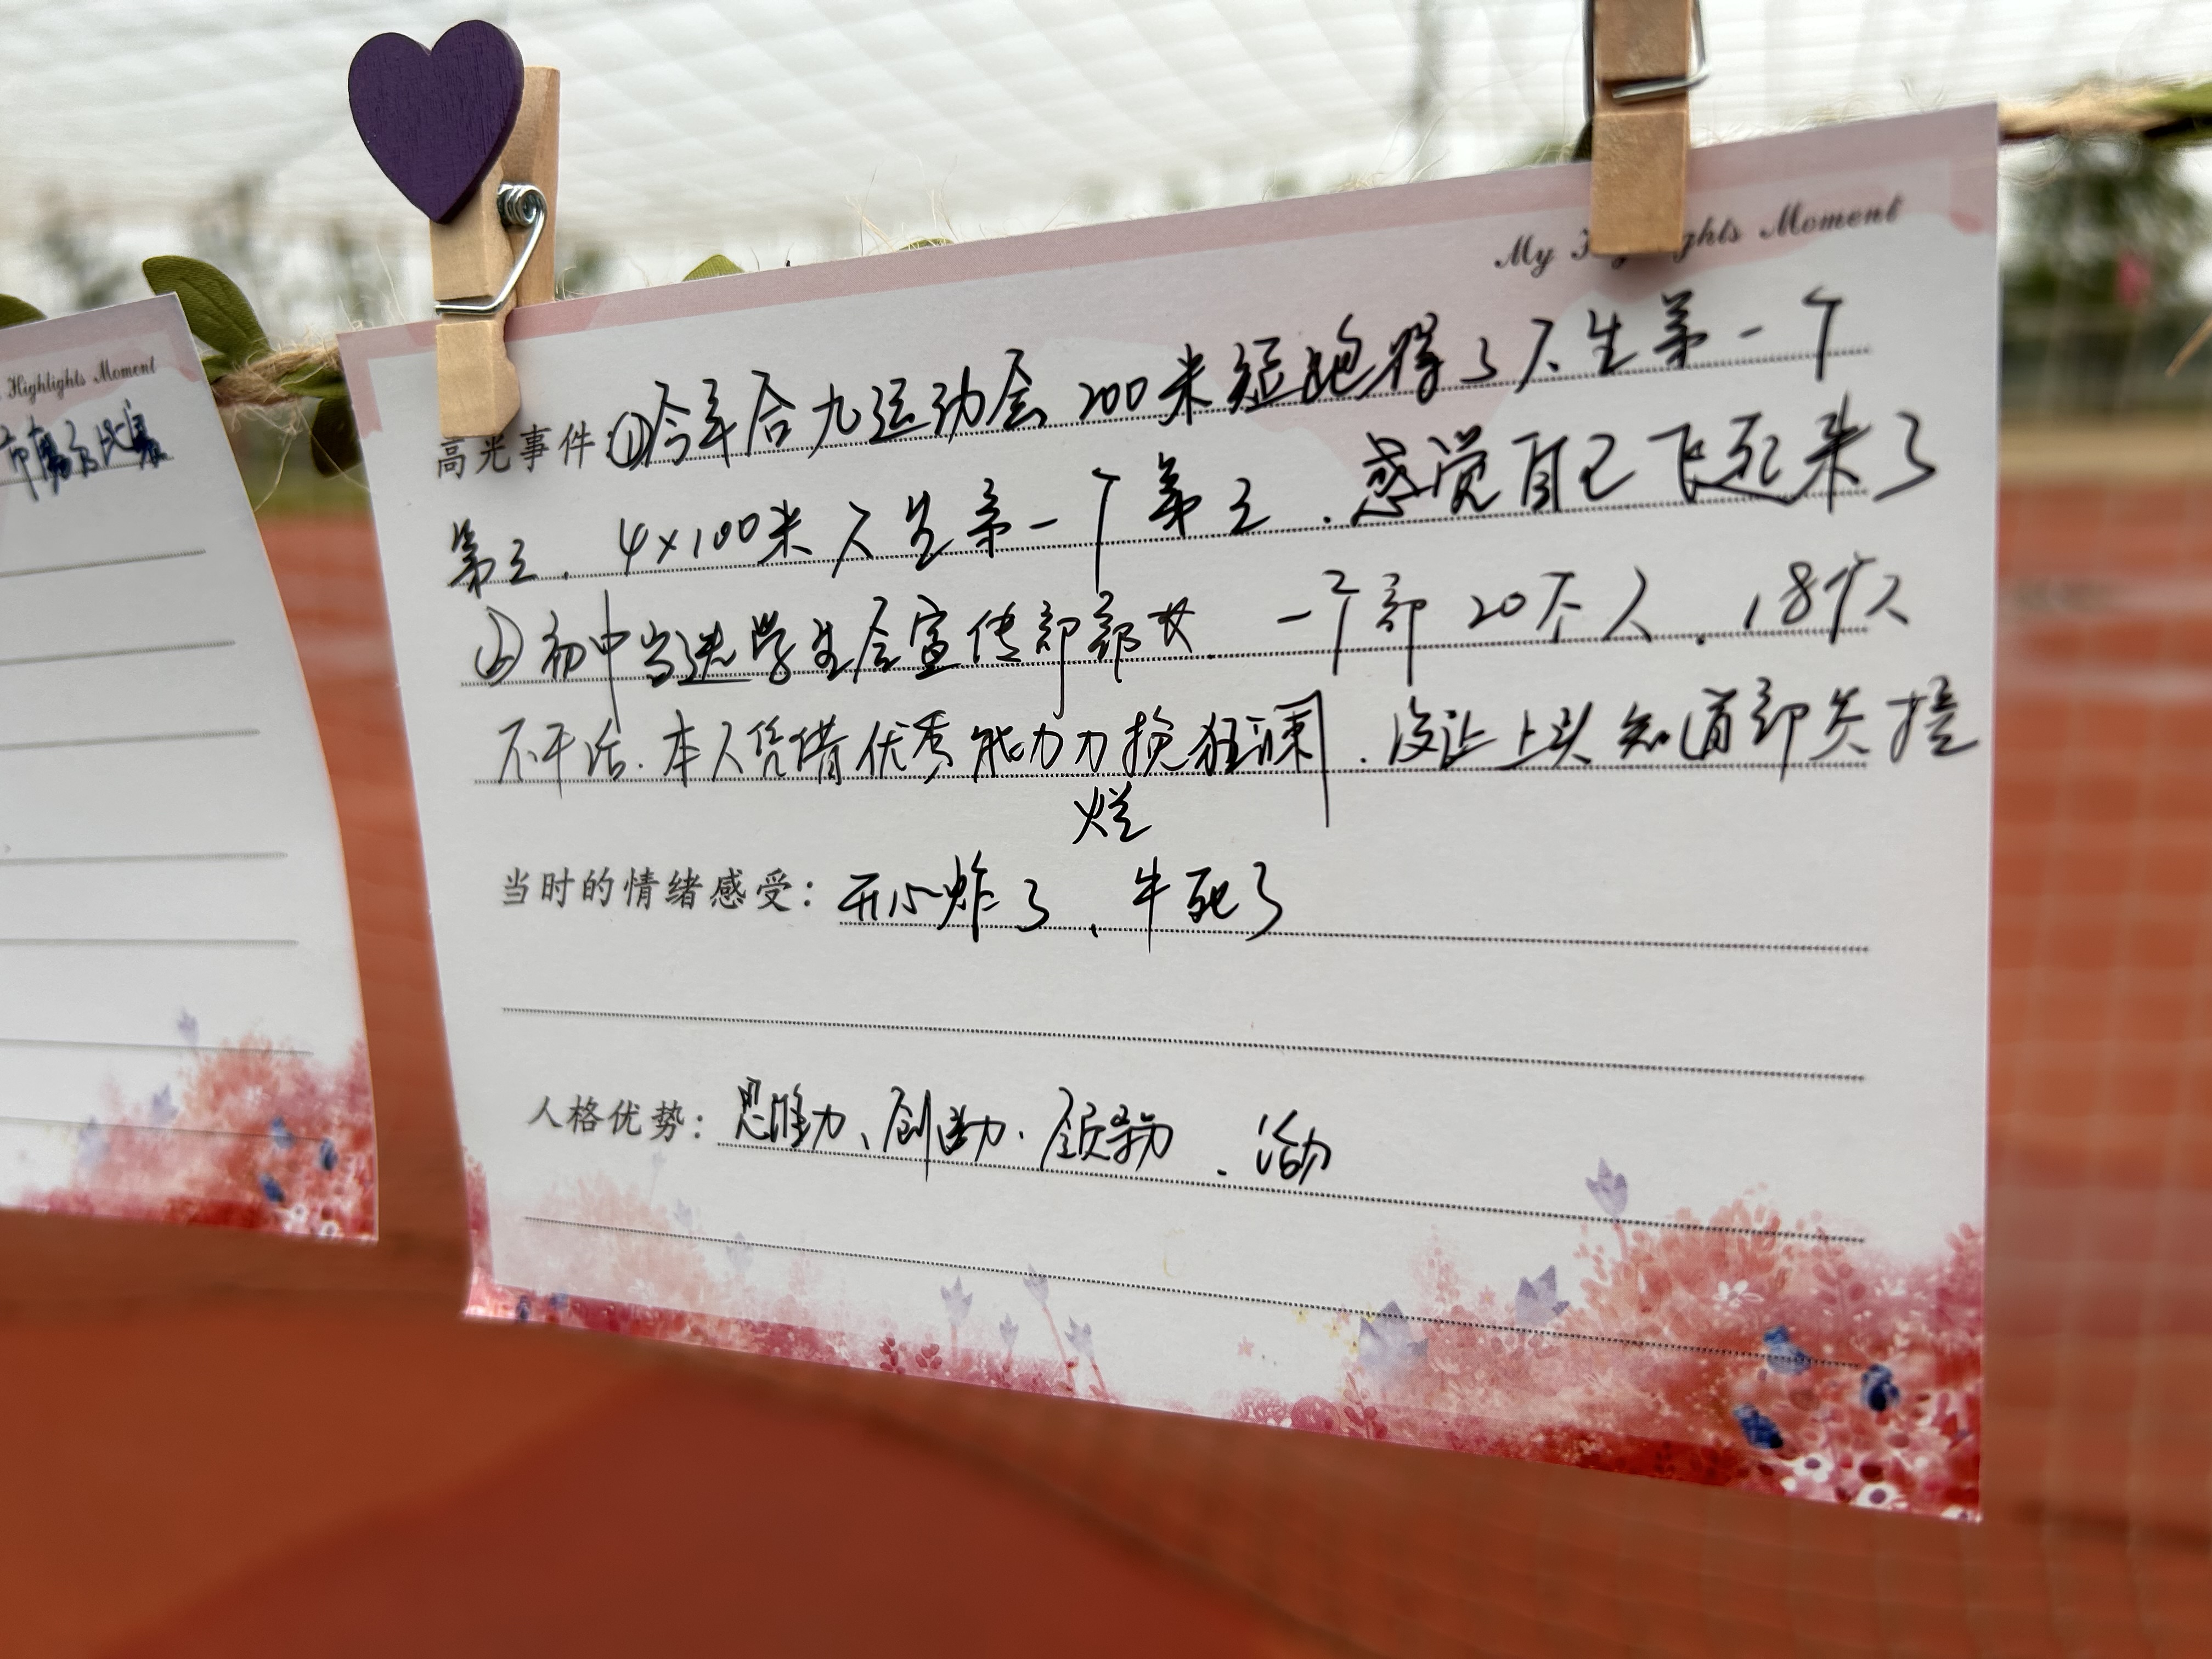 My Highlights Moment
高光事件:①今年合九运动会200米短跑得了人生第一个
第三.4×100米人生第一个第三.感觉自己飞起来了
②初中当选学生会宣传部部长.一个部20个人.18个人
不干活.本人凭借优秀能力力挽狂澜.没让上头知道部员摆
烂
当时的情绪感受:开心炸了、牛死了
人格优势:思维力、创造力.领导力.活力
Highlights Moment